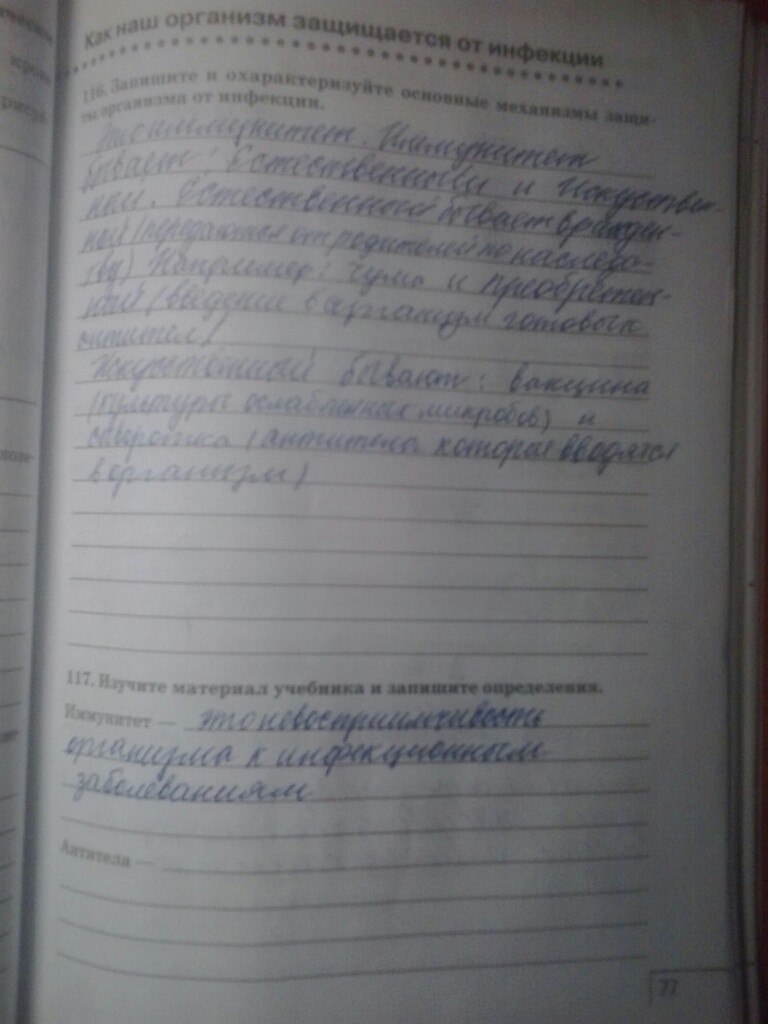 Как наш организм защищается от инфекции
116. Запишите и охарактеризуйте основные механизмы защи-
ты организма от инфекции.
Это иммунитет. Иммунитет
бывает: Естественный и Искуствен-
ный. Естественный бывает врожден-
ной (передаются от родителей по наследс-
тву) Например: чума и преобретен-
ный (введение в организм готовых
антител)
Искуственный бывают: вакцина
(культуры ослабленных микробов) и
сыворотка (антитела которые вводятся
в организм)
117. Изучите материал учебника и запишите определения.
Иммунитет — это невосприимчивость
организма к инфекционным
заболеваниям
Антитела —
77